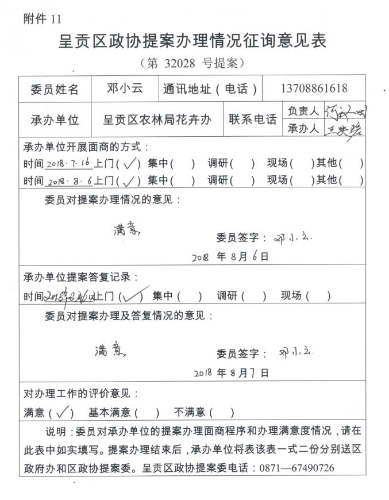 附件 11
呈贡区政协提案办理情况征询意见表
（第 32028 号提案）
委员姓名 邓小云 通讯地址（电话） 13708861618
承办单位 呈贡区农林局花卉办 联系电话 负责人
承办人
承办单位开展面商的方式：
时间 2018.7.16 上门（√） 集中（ ） 调研（ ） 现场（ ）其他（ ）
时间 2018.8.6 上门（√） 集中（ ） 调研（ ） 现场（ ）其他（ ）
委员对提案办理情况的意见：
满意
委员签字：邓小云
2018 年 8 月 6 日
承办单位提案答复记录：
时间 上门（√） 集中（ ） 调研（ ） 现场（ ）
委员对提案办理及答复情况的意见：
满意
委员签字：邓小云
2018 年 8 月 7 日
对办理工作的评价意见：
满意（√） 基本满意（ ） 不满意（ ）
说明：委员对承办单位的提案办理面商程序和办理满意度情况，请在
此表中如实填写。提案办理结束后，承办单位将表该表一式二份分别送区
政府办和区政协提案委。呈贡区政协提案委电话：0871—67490726